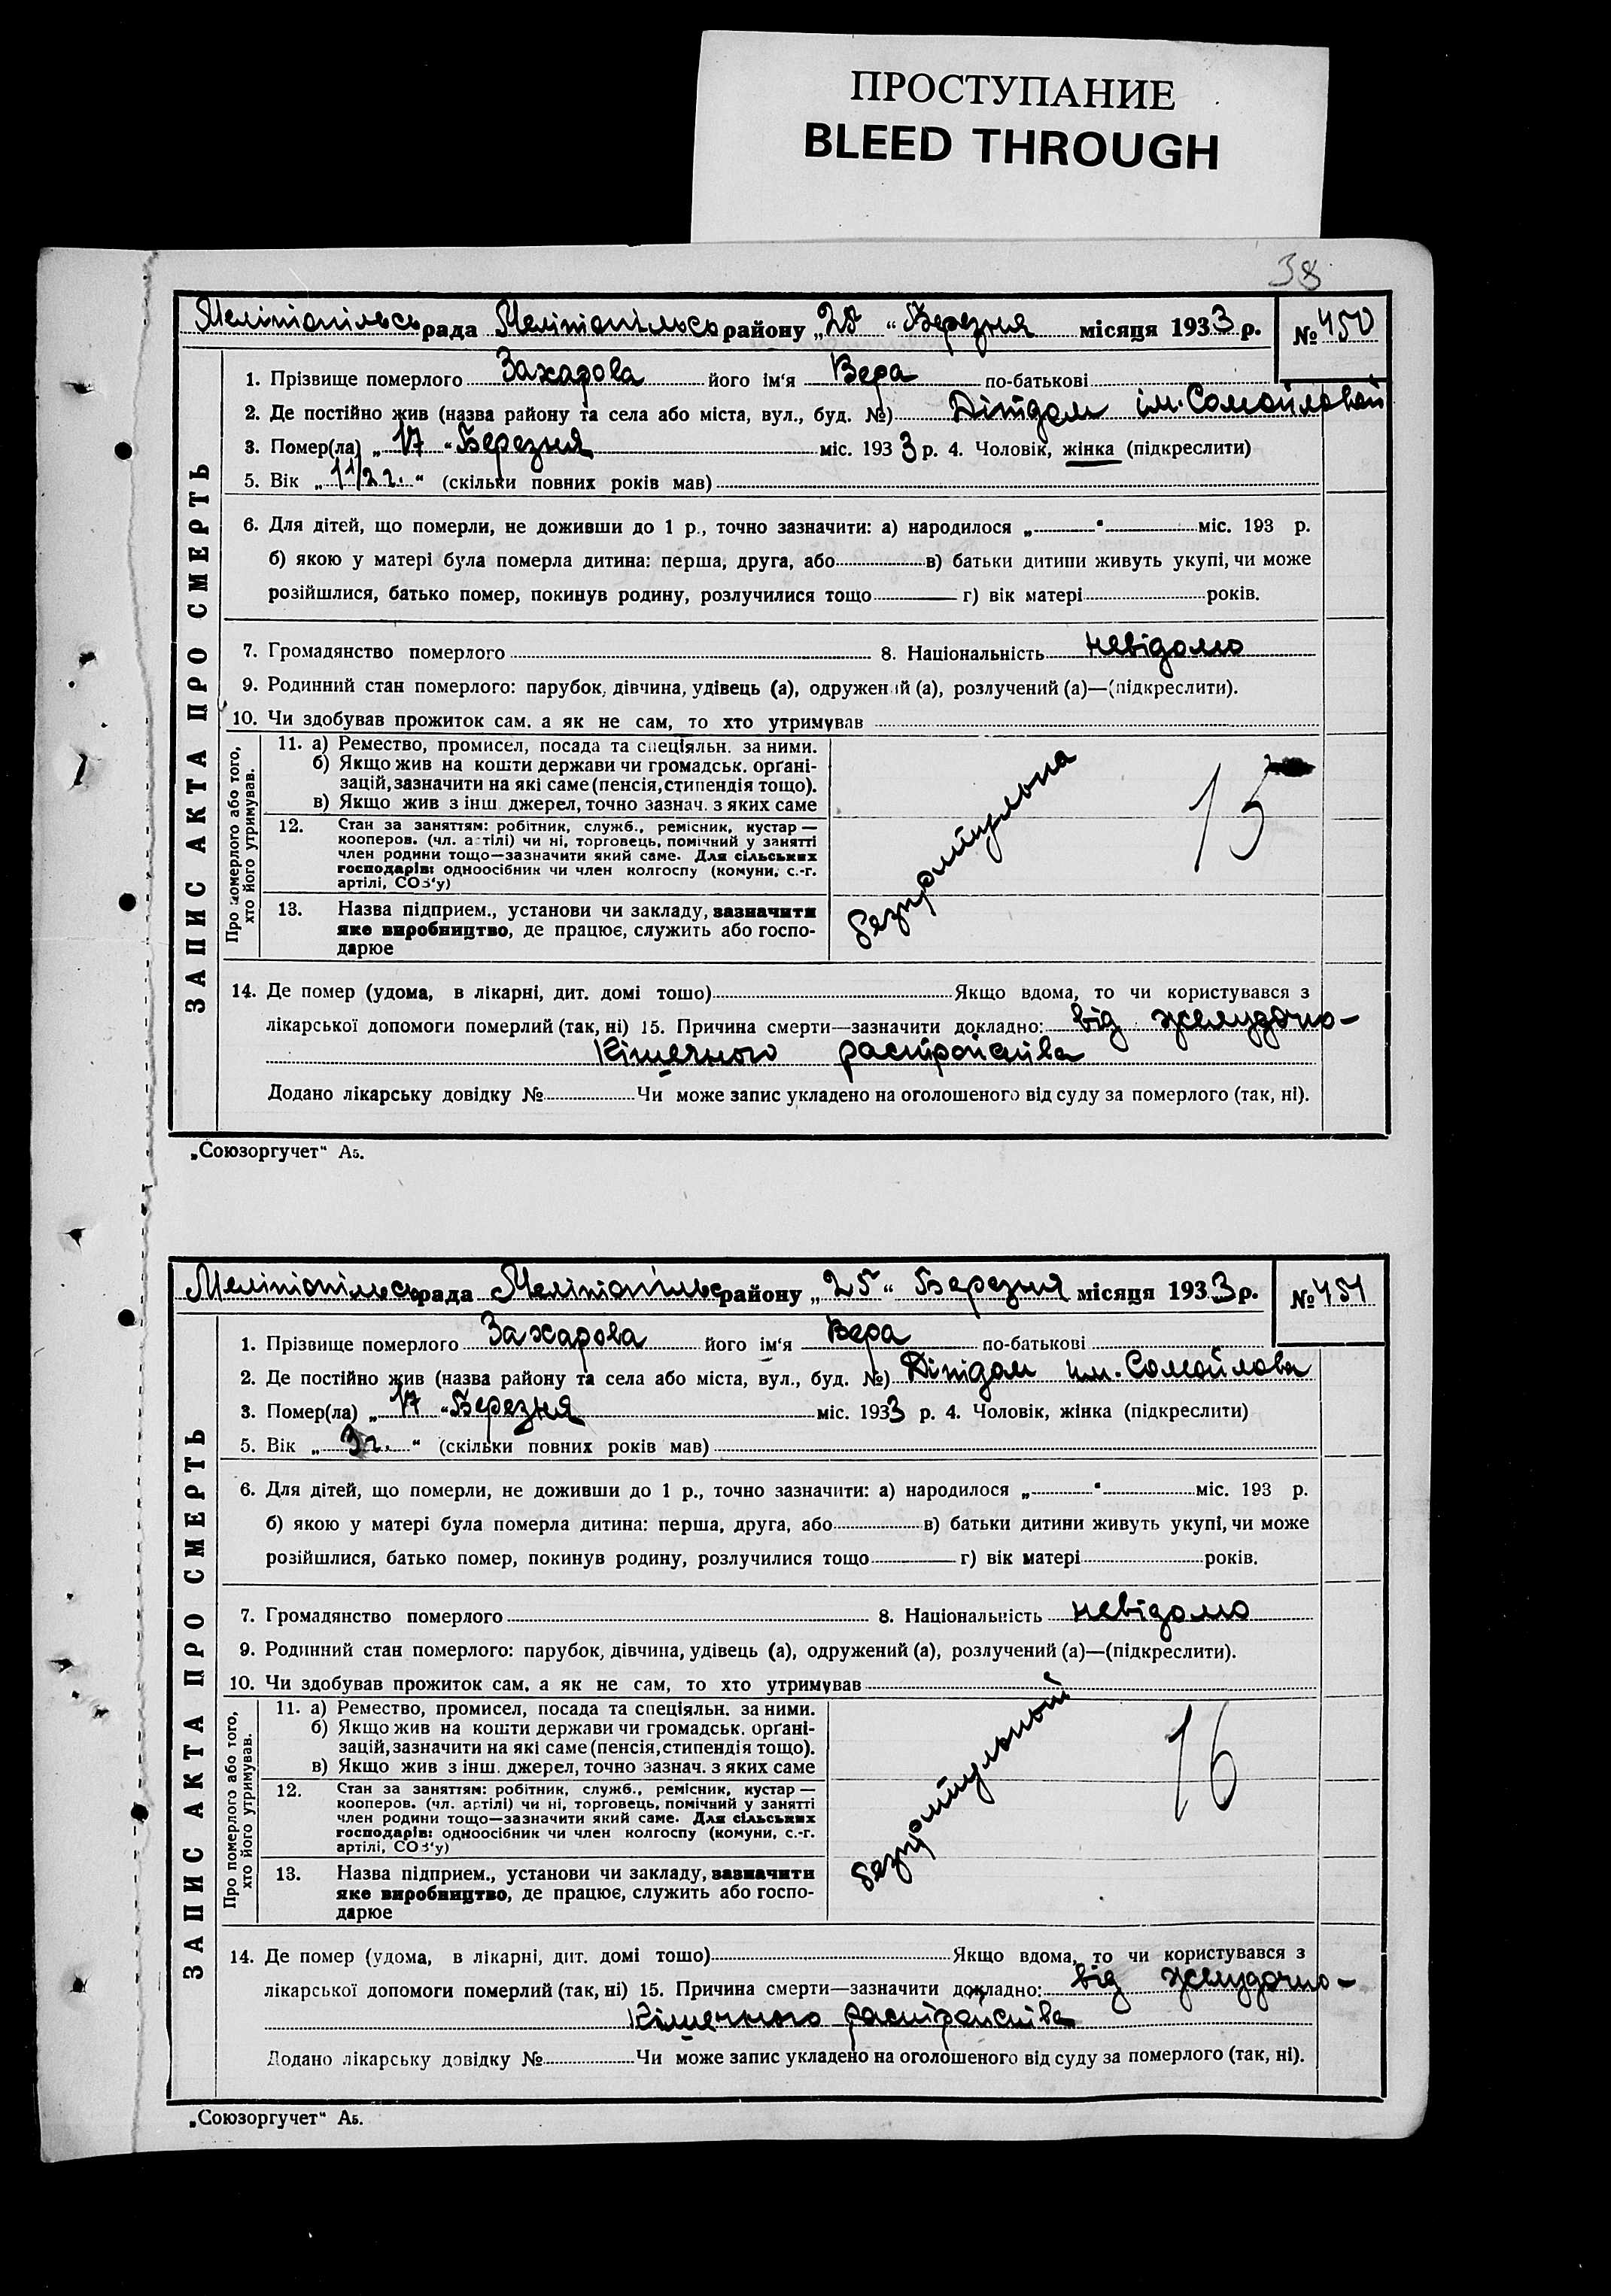 ПРОСТУПАНИЕ
BLEED THROUGH
38
Мелітопільсь рада Мелітопільсь району „25“ Березня місяця 1933 р. № 450
ЗАПИС АКТА ПРО СМЕРТЬ
1. Прізвище померлого Захарова його ім‘я Вера по-батькові
2. Де постійно жив (назва району та села або міста, вул., буд. №) Дітдом ім. Сомойловой
3. Помер(ла) „17“ Березня міс. 1933 р. 4. Чоловік, жінка (підкреслити)
5. Вік „1 1/2 г.“ (скільки повних років мав)
6. Для дітей, що померли, не доживши до 1 р., точно зазначити: а) народилося „ “ міс. 193 р.
б) якою у матері була померла дитина: перша, друга, або в) батьки дитини живуть укупі, чи може
розійшлися, батько помер, покинув родину, розлучилися тощо г) вік матері років.
7. Громадянство померлого 8. Національність невідомо
9. Родинний стан померлого: парубок, дівчина, удівець (а), одружений (а), розлучений (а)—(підкреслити).
10. Чи здобував прожиток сам, а як не сам, то хто утримував
Про померлого або того,
хто його утримував.
11. а) Ремество, промисел, посада та спеціяльн. за ними.
б) Якщо жив на кошти держави чи громадськ. орґані-
зацій, зазначити на які саме (пенсія, стипендія тощо).
в) Якщо жив з інш. джерел, точно зазнач. з яких саме
12. Стан за заняттям: робітник, служб., ремісник, кустар —
кооперов. (чл. артілі) чи ні, торговець, помічний у занятті
член родини тощо—зазначити який саме. Для сільських
господарів: одноосібник чи член колгоспу (комуни, с.-г.
артілі, СОЗ‘у)
13. Назва підприєм., установи чи закладу, зазначити
яке виробництво, де працює, служить або госпо-
дарюе
безпритульна
15
14. Де помер (удома, в лікарні, дит. домі тощо) Якщо вдома, то чи користувався з
лікарської допомоги померлий (так, ні) 15. Причина смерти—зазначити докладно: від желудочно-
кішечного растройства
Додано лікарську довідку № Чи може запис укладено на оголошеного від суду за померлого (так, ні).
„Союзоргучет“ А5.
Мелітопільсь рада Мелітопільс району „25“ Березня місяця 1933 р. № 451
ЗАПИС АКТА ПРО СМЕРТЬ
1. Прізвище померлого Захарова його ім‘я Вера по-батькові
2. Де постійно жив (назва району та села або міста, вул., буд. №) Дітдом им. Сомойлова
3. Помер(ла) „17“ Березня міс. 1933 р. 4. Чоловік, жінка (підкреслити)
5. Вік „3 г.“ (скільки повних років мав)
6. Для дітей, що померли, не доживши до 1 р., точно зазначити: а) народилося „ “ міс. 193 р.
б) якою у матері була померла дитина: перша, друга, або в) батьки дитини живуть укупі, чи може
розійшлися, батько помер, покинув родину, розлучилися тощо г) вік матері років.
7. Громадянство померлого 8. Національність невідомо
9. Родинний стан померлого: парубок, дівчина, удівець (а), одружений (а), розлучений (а)—(підкреслити).
10. Чи здобував прожиток сам, а як не сам, то хто утримував
Про померлого або того,
хто його утримував.
11. а) Ремество, промисел, посада та спеціяльн. за ними.
б) Якщо жив на кошти держави чи громадськ. орґані-
зацій, зазначити на які саме (пенсія, стипендія тощо).
в) Якщо жив з інш. джерел, точно зазнач. з яких саме
12. Стан за заняттям: робітник, служб., ремісник, кустар —
кооперов. (чл. артілі) чи ні, торговець, помічний у занятті
член родини тощо—зазначити який саме. Для сільських
господарів: одноосібник чи член колгоспу (комуни, с.-г.
артілі, СОЗ‘у)
13. Назва підприєм., установи чи закладу, зазначити
яке виробництво, де працює, служить або госпо-
дарюе
безпритульный
16
14. Де помер (удома, в лікарні, дит. домі тощо) Якщо вдома, то чи користувався з
лікарської допомоги померлий (так, ні) 15. Причина смерти—зазначити докладно: від желудочно-
кішечного растройства
Додано лікарську довідку № Чи може запис укладено на оголошеного від суду за померлого (так, ні).
„Союзоргучет“ А5.